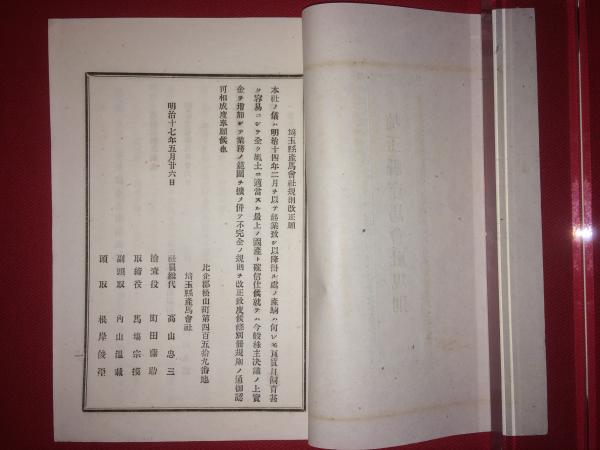 埼玉縣產馬會社規則改正願
本社ノ儀ハ明治十四年二月ヲ以テ創業致シ以降出ル處ノ產駒ハ何レモ良質且飼育甚
タ容易ニシテ全ク風土ニ適當スル最上ノ國產ト確信仕候就テハ今般株主決議ノ上資
金ヲ增加シテ業務ノ範圍ヲ擴メ併テ不完全ノ規則ヲ改正致度候條別冊規則ノ通御認
可相成度奉願候也
比企郡松山町第四百五拾九番地
埼玉縣產馬會社
明治十七年五月廿六日
社員總代 高山忠三
檢査役 町田藤助
取締役 馬場宗
副頭取 內山溫載
頭取 根岸
埼玉縣產馬會社規則